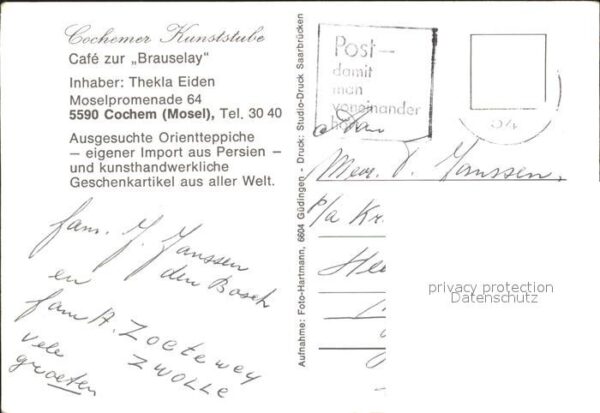 Cochemer Kunststube
Café zur „Brauselay"
Inhaber: Thekla Eiden
Moselpromenade 64
5590 Cochem (Mosel), Tel. 30 40
Ausgesuchte Orientteppiche
— eigener Import aus Persien —
und kunsthandwerkliche
Geschenkartikel aus aller Welt.
fam. J. Janssen
den Bosch
en
fam A. Zoetewey
ZWOLLE
vele
groeten
Aufnahme: Foto-Hartmann, 6604 Güdingen - Druck: Studio-Druck Saarbrücken
Post—
damit
man
voneinander
54
Aan
Mevr. Janssen.
p/a Kr
Hee
privacy protection
Datenschutz